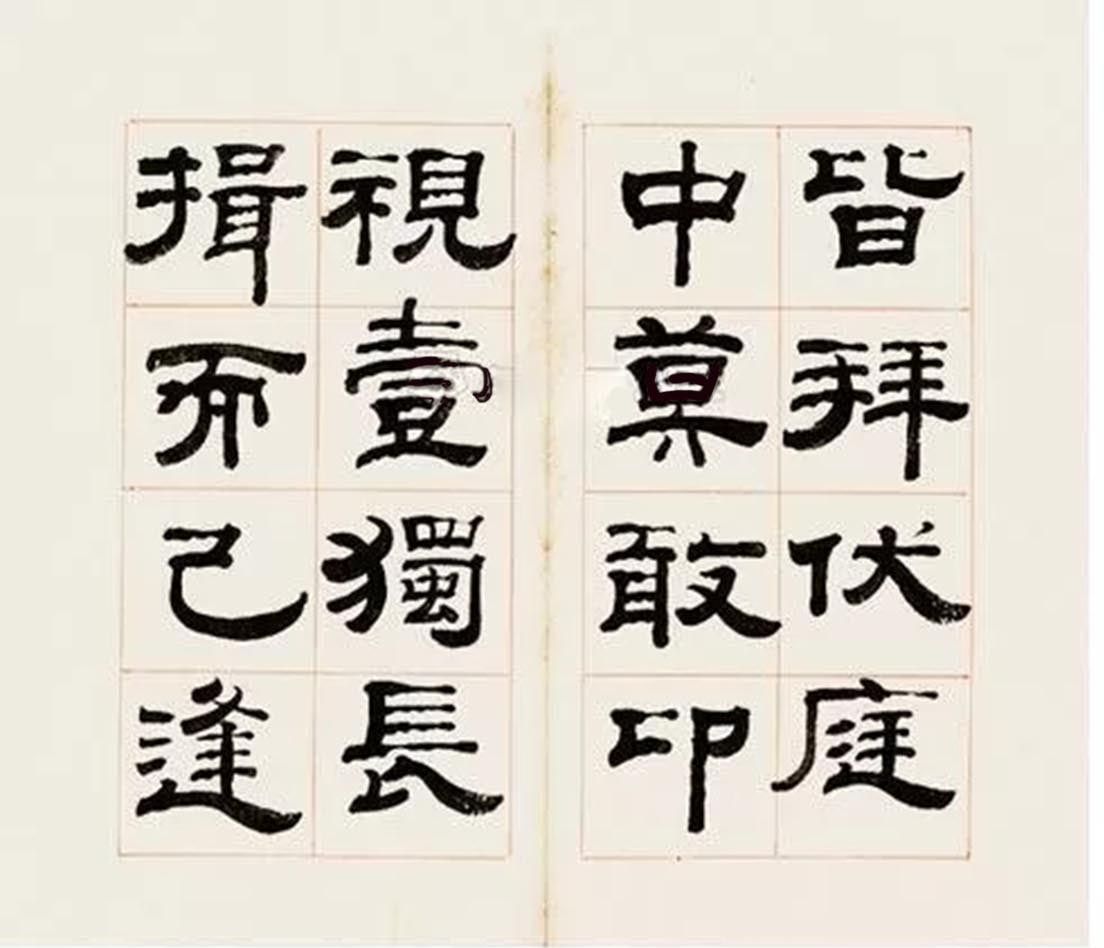 皆拜伏庭
中莫敢卬
視壹獨長
揖而已逢